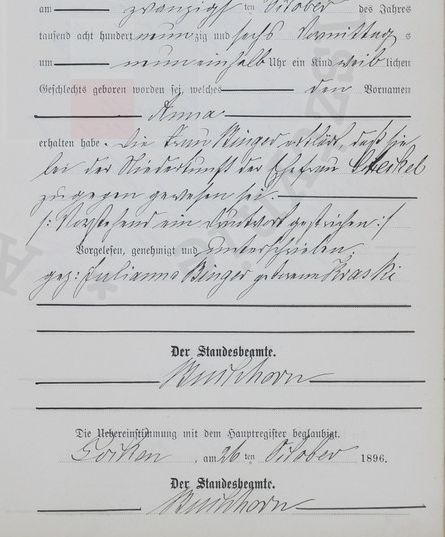 am zwanzigsten October des Jahres
tausend acht hundert neunzig und sechs Vormittags
um neun einhalb Uhr ein Kind weiblichen
Geschlechts geboren worden sei, welches den Vornamen
Anna
erhalten habe. Die Frau Binger erklärt, daß sie
bei der Niederkunft der Ehefrau
zugegen gewesen sei.
/: Vorstehend ein Druckwort gestrichen :/
Vorgelesen, genehmigt und unterschrieben
gez: Julianna Binger geborene Kraski
Der Standesbeamte.
Buchhorn
Die Uebereinstimmung mit dem Hauptregister beglaubigt.
am 26 ten October 1896.
Der Standesbeamte.
Buchhorn